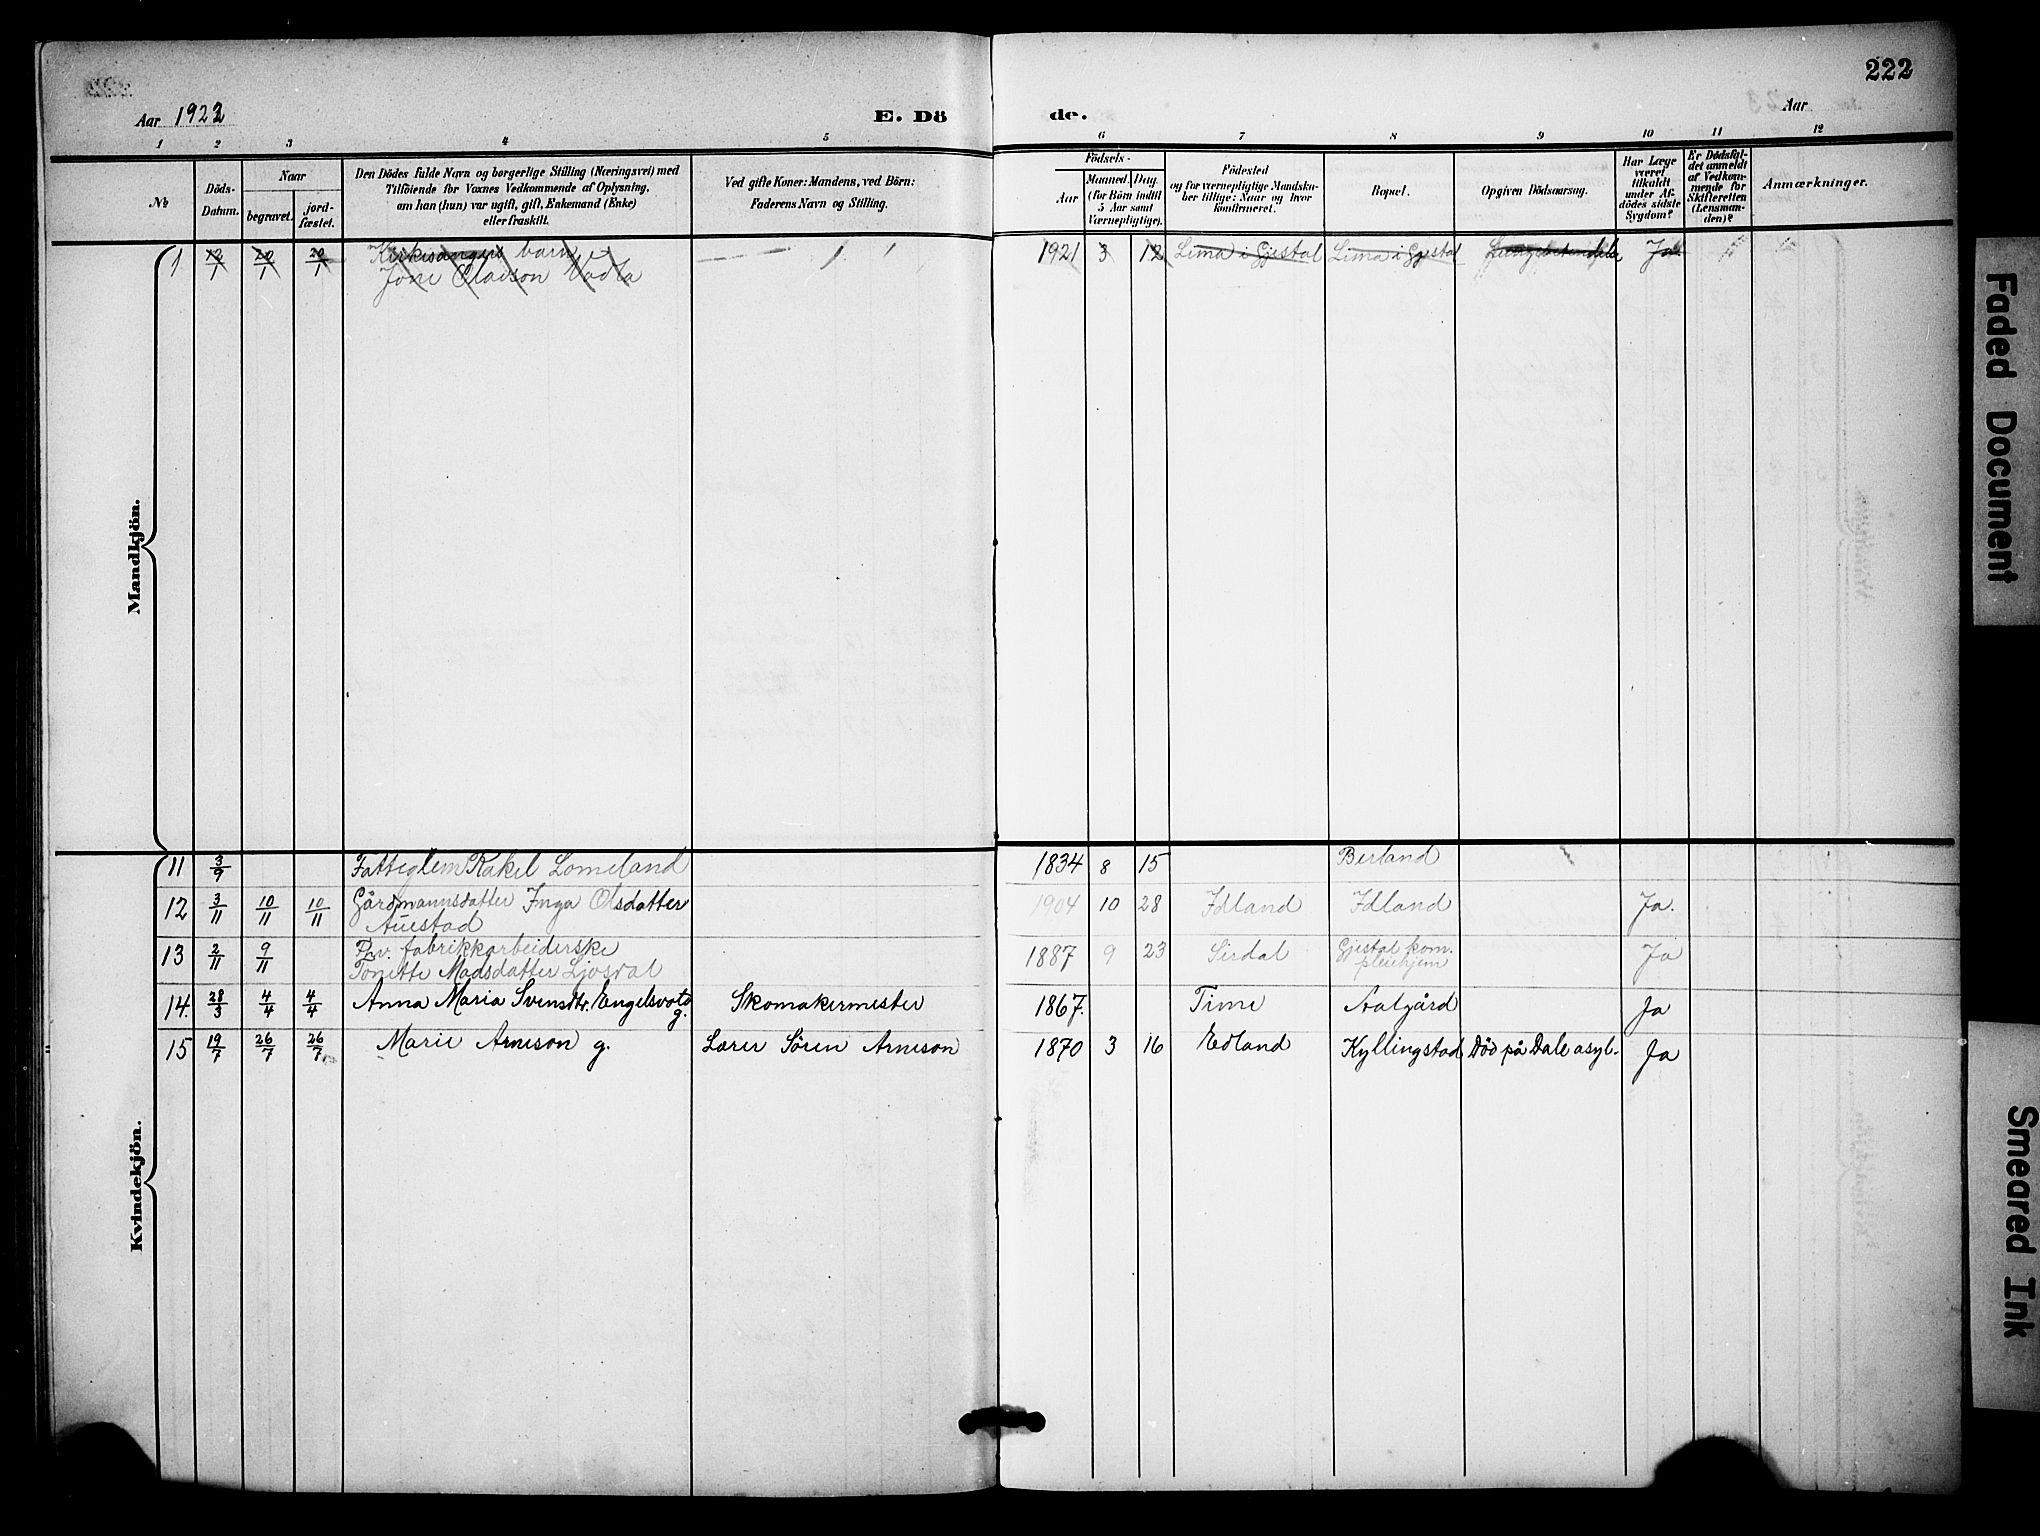 222
Aar 1922
E. Dö
de.
Aar
1 2 3 4 5 6 7 8 9 10 11 12
№
Döds-
Datum.
Naar
begravet.
jord-
fæstet.
Den Dödes fulde Navn og borgerlige Stilling (Næringsvei) med
Tilföiende for Voxnes Vedkommende af Oplysning,
om han (hun) var ugift, gift, Enkemand (Enke)
eller fraskilt.
Ved gifte Koner: Mandens, ved Börn:
Faderens Navn og Stilling.
Födsels-
Aar
Maaned. Dag.
(for Börn indtil
5 Aar samt
Værnepligtige).
Födested
og for værnepligtige Mandska-
ber tillige: Naar og hvor
konfirmeret.
Bopæl.
Opgiven Dödsaarsag.
Har Læge
været
tilkaldt
under Af-
dödes sidste
Sygdom?
Er Dödsfal-
det anmeldt
af Vedkom-
mende for
Skifteretten
(Lensman-
den)?
Anmærkninger.
Mandkjön.
1 12/1 20/1 20/1 Kirkesangers barn 1921 3 12 Lima i Gjestal Lima i Gjestal Ja
Jone Oladson
Kvindekjön.
11 3/9 Fatteglem Rakel Lomeland 1834 8 15 Berland
12 3/11 10/11 10/11 Gårdmannsdatter Inga Olsdatter 1904 10 28 Idland Idland Ja.
Auestad
13 2/11 9/11 Fhv. fabrikkarbeiderske 1887 9 23 Sirdal Gjestal kom. Ja
Tonette Madsdatter Ljosdal pleiehjem
14. 28/3 4/4 4/4 Anna Maria Svensdtr. Engelsvold Skomakermester 1867. Time Aalgård Ja
g.
15 19/7 26/7 26/7 Marie Arneson g. Lærer Sören Arneson 1870 3 16 Edland Kyllingstad Död på Dale asyl. Ja
Faded Document
Smeared Ink